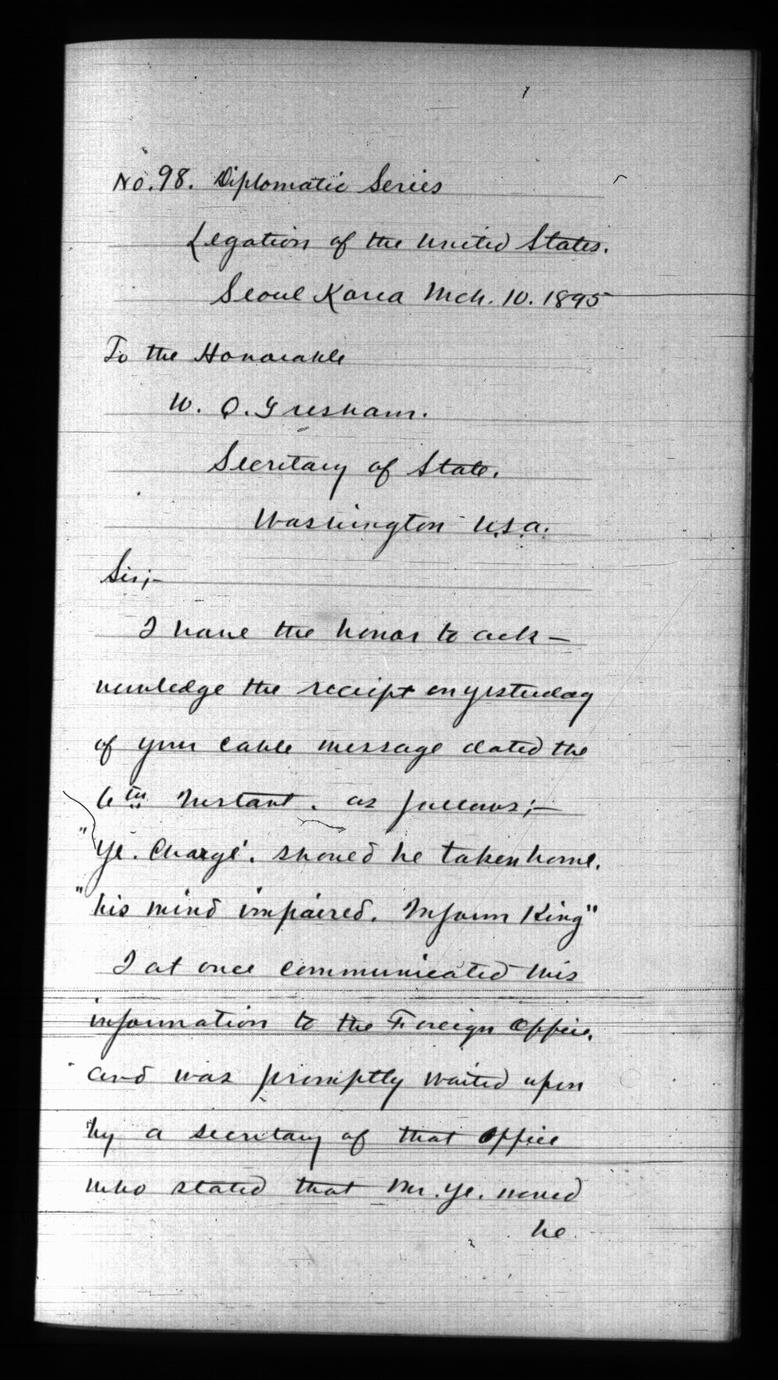 No. 98. Diplomatic Series
Legation of the United States.
Seoul Korea Mch. 10. 1895
To the Honorable
W. Q. Gresham.
Secretary of State.
Washington U.S.A.
Sir;—
I have the honor to ack—
nowledge the receipt on yesterday
of your cable message dated the
6th Instant. as follows;—
"Ye. Chargé. should be taken home.
"his mind impaired. Inform King"
I at once communicated this
information to the Foreign Office.
and was promptly waited upon
by a secretary of that Office
who stated that Mr. Ye. would
be